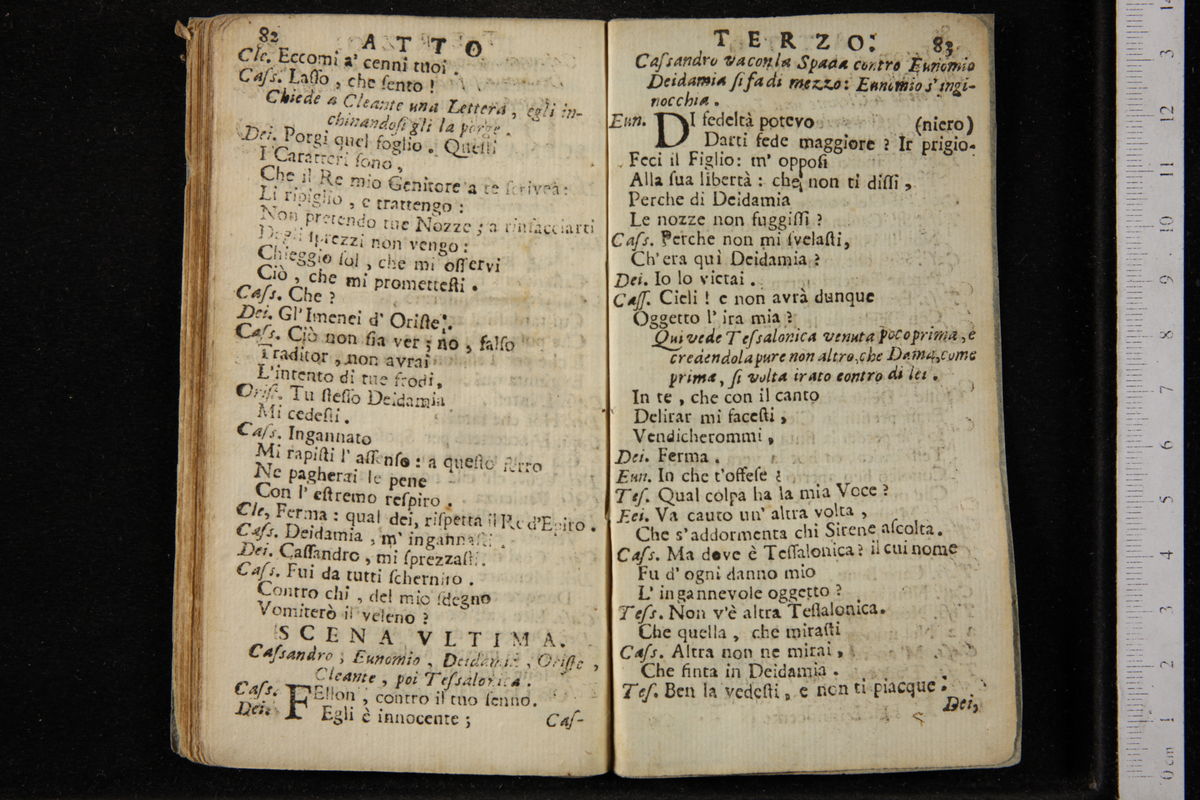 82
ATTO
Cle. Eccomi a' cenni tuoi.
Caſs. Laſſo, che ſento!
Chiede a Cleante una Lettera, egli in-
chinandoſi gli la porge.
Dei. Porgi quel foglio. Queſti
I Caratteri ſono,
Che il Re mio Genitore a te ſcrivea:
Li ripiglio, e trattengo:
Non pretendo tue Nozze; a rinfacciarti
Degli ſprezzi non vengo:
Chieggio ſol, che mi oſſervi
Ciò, che mi prometteſti.
Caſs. Che?
Dei. Gl'Imenei d' Oriſte.
Caſs. Ciò non ſia ver; no, falſo
Traditor, non avrai
L'intento di tue frodi,
Oriſt. Tu ſteſſo Deidamia
Mi cedeſti.
Caſs. Ingannato
Mi rapiſti l' aſſenſo: a queſto ferro
Ne pagherai le pene
Con l' eſtremo reſpiro.
Cle, Ferma: qual dei, riſpetta il Re d'Epiro.
Caſs. Deidamia, m' ingannaſti.
Dei. Caſſandro, mi ſprezzaſti.
Caſs. Fui da tutti ſchernito.
Contro chi, del mio ſdegno
Vomiterò il veleno?
SCENA VLTIMA.
Caſsandro; Eunomio, Deidamia, Oriſte,
Cleante, poi Teſsalonica.
Caſs. FEllon, contro il tuo ſenno.
Dei. Egli è innocente;
Caſ-
TERZO:
83
Caſsandro va con la Spada contro Eunomio
Deidamia ſi fa di mezzo: Eunomio s'ingi-
nocchia.
Eun. DI fedeltà potevo (niero)
Darti fede maggiore? Ir prigio-
Feci il Figlio: m' oppoſi
Alla ſua libertà: che non ti diſſi,
Perche di Deidamia
Le nozze non fuggiſſi?
Caſs. Perche non mi ſvelaſti,
Ch'era quì Deidamia?
Dei. Io lo vietai.
Caſſ. Cieli! e non avrà dunque
Oggetto l' ira mia?
Qui vede Teſsalonica venuta poco prima, e
credendola pure non altro, che Dama, come
prima, ſi volta irato contro di lei.
In te, che con il canto
Delirar mi faceſti,
Vendicherommi,
Dei. Ferma.
Eun. In che t'offeſe?
Teſ. Qual colpa ha la mia Voce?
Eei. Va cauto un' altra volta,
Che s'addormenta chi Sirene aſcolta.
Caſs. Ma dove è Teſſalonica? il cui nome
Fu d' ogni danno mio
L' ingannevole oggetto?
Teſs. Non v'è altra Teſſalonica.
Che quella, che miraſti
Caſs. Altra non ne mirai,
Che finta in Deidamia.
Teſ. Ben la vedeſti, e non ti piacque.
Dei,